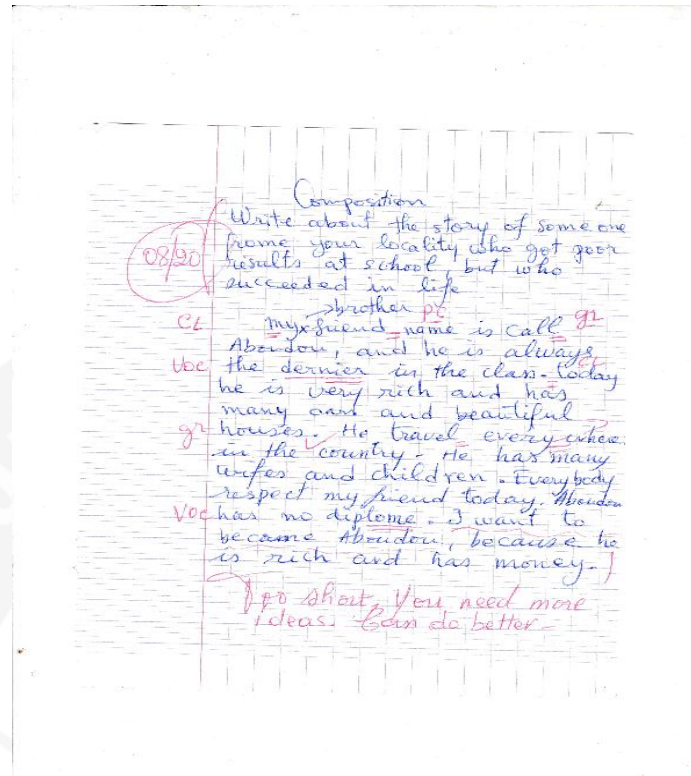 Composition
Write about the story of some one
frome your locality who got poor
08/20
results at school but who
succeeded in life
brother pc
CL my friend name is call gr
Aboudou, and he is always
Voc the dernier in the class. today
he is very rich and has
many and beautiful
gr houses. He travel every where
in the country. He has many
wifes and children. Everybody
respect my friend today. Aboudou
Voc has no diplome. I want to
became Aboudou, because he
is rich and has money.
Too short, You need more
ideas. Can do better